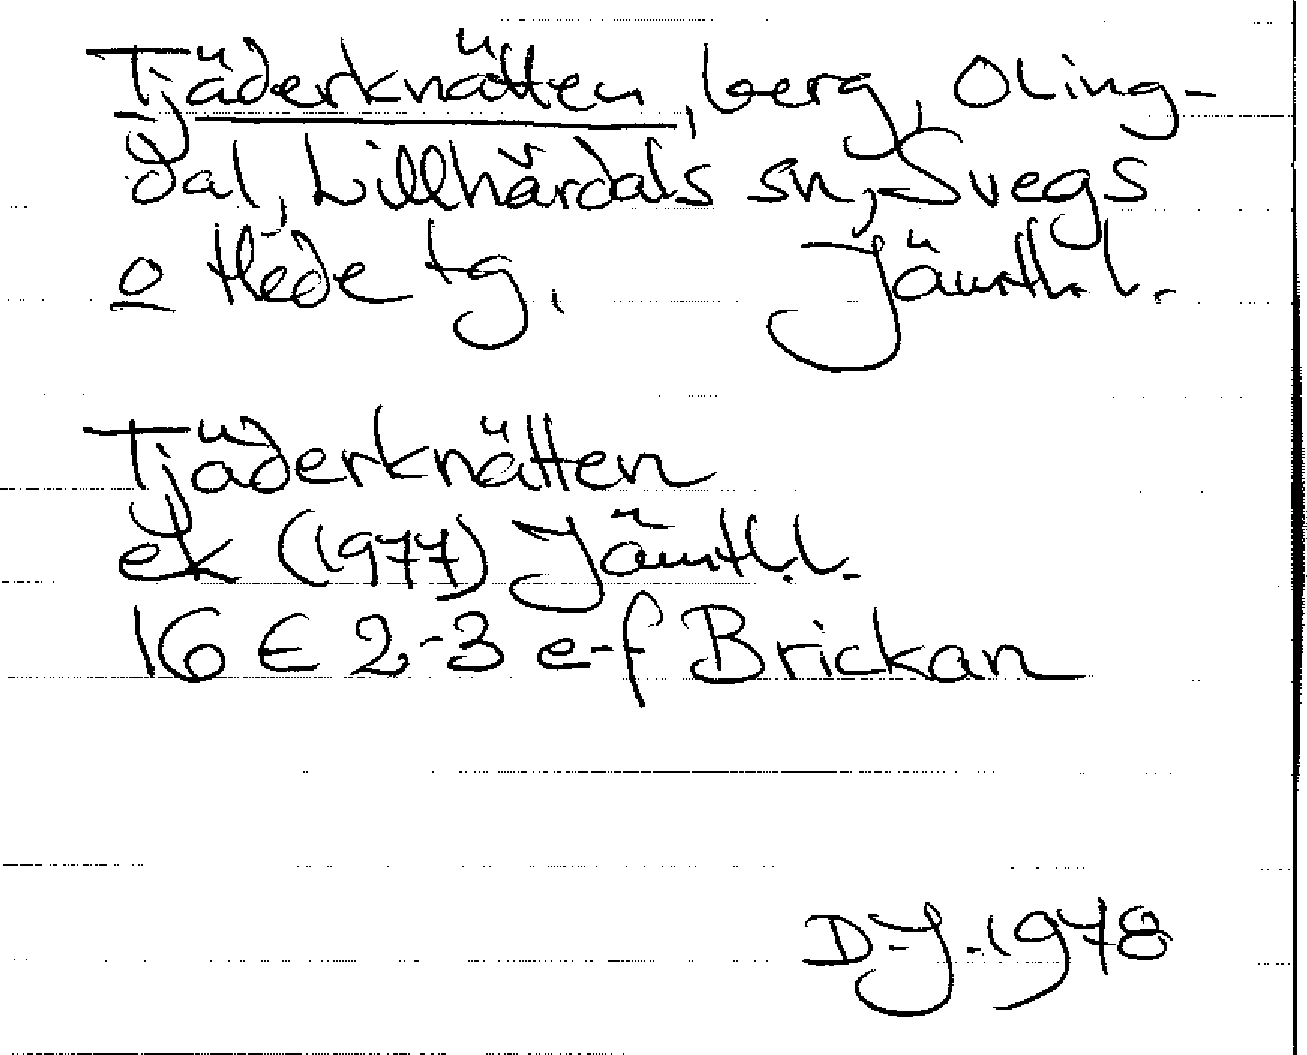 Tjäderknätten, berg, Oling-
dal, Lillhärdals sn, Svegs
o Hede tg. Jämtl. l.
Tjäderknätten
ek (1977) Jämtl. l.
16 E 2-3 e-f Brickan
D-J. 1978